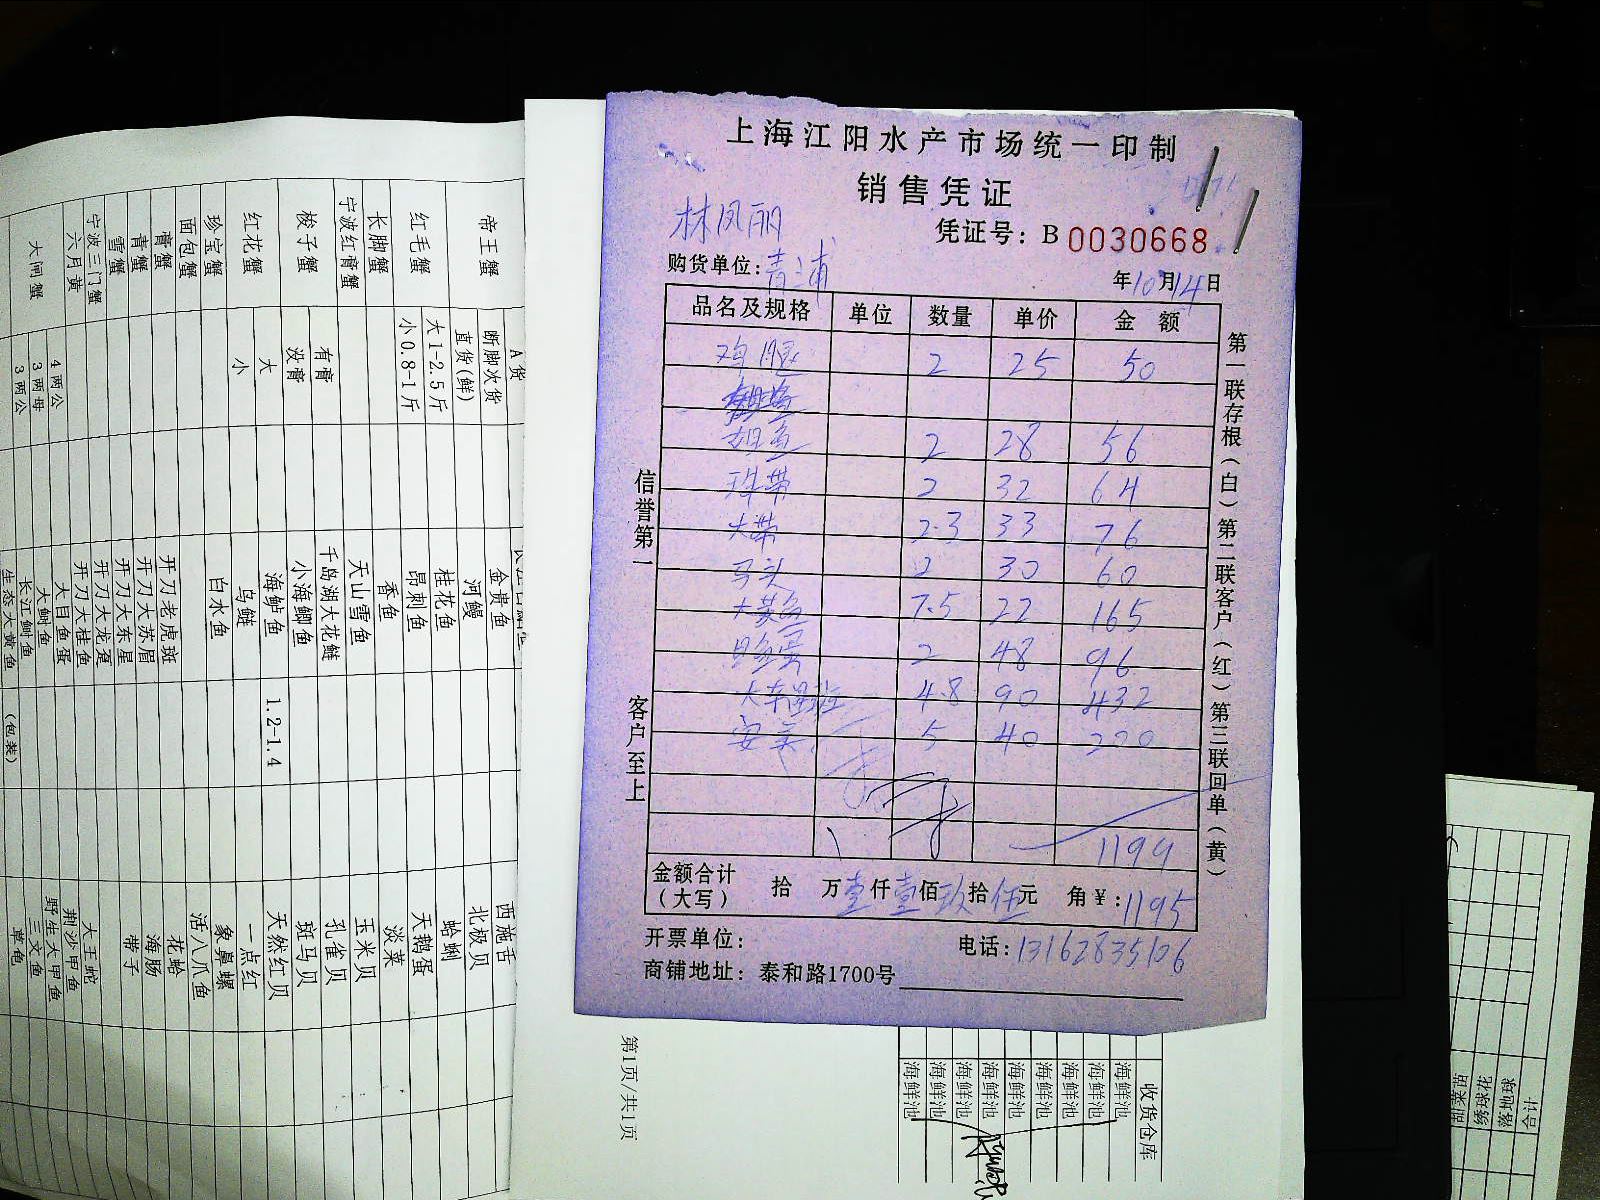 上海江阳水产市场统一印制
销售凭证
林凤丽
凭证号：B 0030668
购货单位：青浦
年10月14日
品名及规格 单位 数量 单价 金 额
鸡腿 2 25 50
2 28 56
珠带 2 32 64
大带 2.3 33 76
马头 2 30 60
大黄鱼 7.5 22 165
2 48 96
4.8 90 432
5 40 200
1199
金额合计（大写） 拾 万壹仟壹佰玖拾伍元 角￥：1195
开票单位： 电话：13162835106
商铺地址：泰和路1700号
信誉第一
客户至上
第一联存根（白）第二联客户（红）第三联回单（黄）
A货
帝王蟹 断脚次货
直货(鲜)
红毛蟹 大1-2.5斤
小0.8-1斤
长脚蟹
宁波红膏蟹
梭子蟹 有膏
没膏
红花蟹 大
小
珍宝蟹
面包蟹
膏蟹
青蟹
雪蟹
宁波三门蟹
六月黄
大闸蟹 4两公
3两母
3两公
金贵鱼
河鳗
桂花鱼
昂刺鱼
香鱼
天山雪鱼
千岛湖大花鲢
小海鲫鱼
海鲈鱼 1.2-1.4
乌鲢
白水鱼
开刀老虎斑
开刀大苏眉
开刀大东星
开刀大龙趸
开刀大桂鱼
大目鱼蛋
大鲥鱼
长江鲥鱼
生态大黄鱼 (包装)
西施舌
北极贝
蛤蜊
天鹅蛋
淡菜
玉米贝
孔雀贝
斑马贝
天然红贝
一点红
象鼻螺
活八爪鱼
花蛤
海肠
带子
大王蛇
荆沙甲鱼
野生大甲鱼
三文鱼
草龟
第1页/共1页
收货仓库
海鲜池
海鲜池
海鲜池
海鲜池
海鲜池
海鲜池
海鲜池
海鲜池
海鲜池
合计
落地球
绣球花